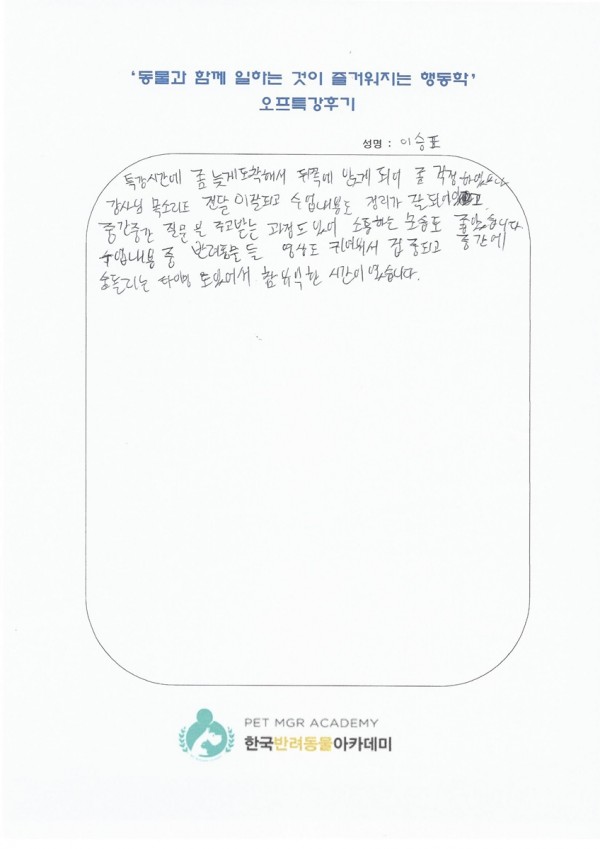 ‘동물과 함께 일하는 것이 즐거워지는 행동학’
오프특강후기
성명 : 이승표
특강시간에 좀 늦게도착해서 뒤쪽에 앉게 되어 좀 걱정하였으나
강사님 목소리도 전달 이잘되고 수업내용도 정리가 잘되어있고
중간중간 질문을 주고받는 과정도 있어 소통하는 모습도 좋았습니다
수업내용 중 반려동물들 영상도 귀여워서 집중되고 중간에
숨돌리는 타이밍 도있어서 참 유익한 시간이었습니다.
PET MGR ACADEMY
한국반려동물아카데미